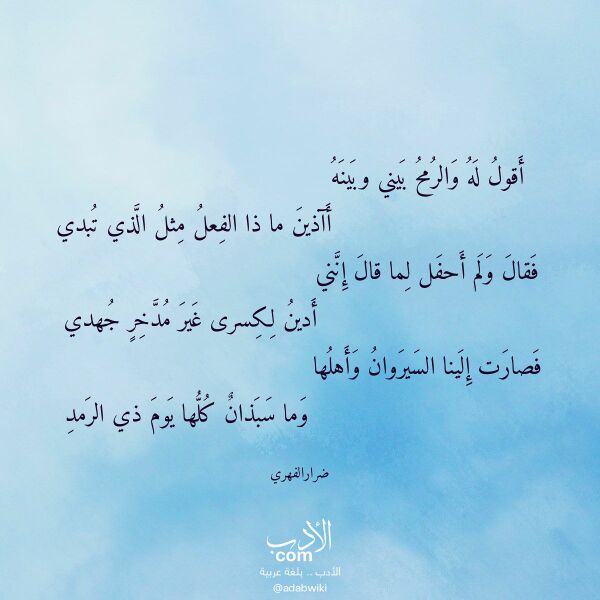 أَقولُ لَهُ وَالرُمحُ بَيني وبَينَهُ
أَآذينَ ما ذا الفِعلُ مِثلُ الَّذي تُبدي
فَقالَ وَلَم أَحفَل لِما قالَ إِنَّني
أَدينُ لِكِسرى غَيرَ مُدَّخِرٍ جُهدي
فَصارَت إِلَينا السَيرَوانُ وَأَهلُها
وَما سَبَذانٌ كُلُّها يَومَ ذي الرَمدِ
ضرارالفهري
الأدب
com
الأدب .. بلغة عربية
@adabwiki